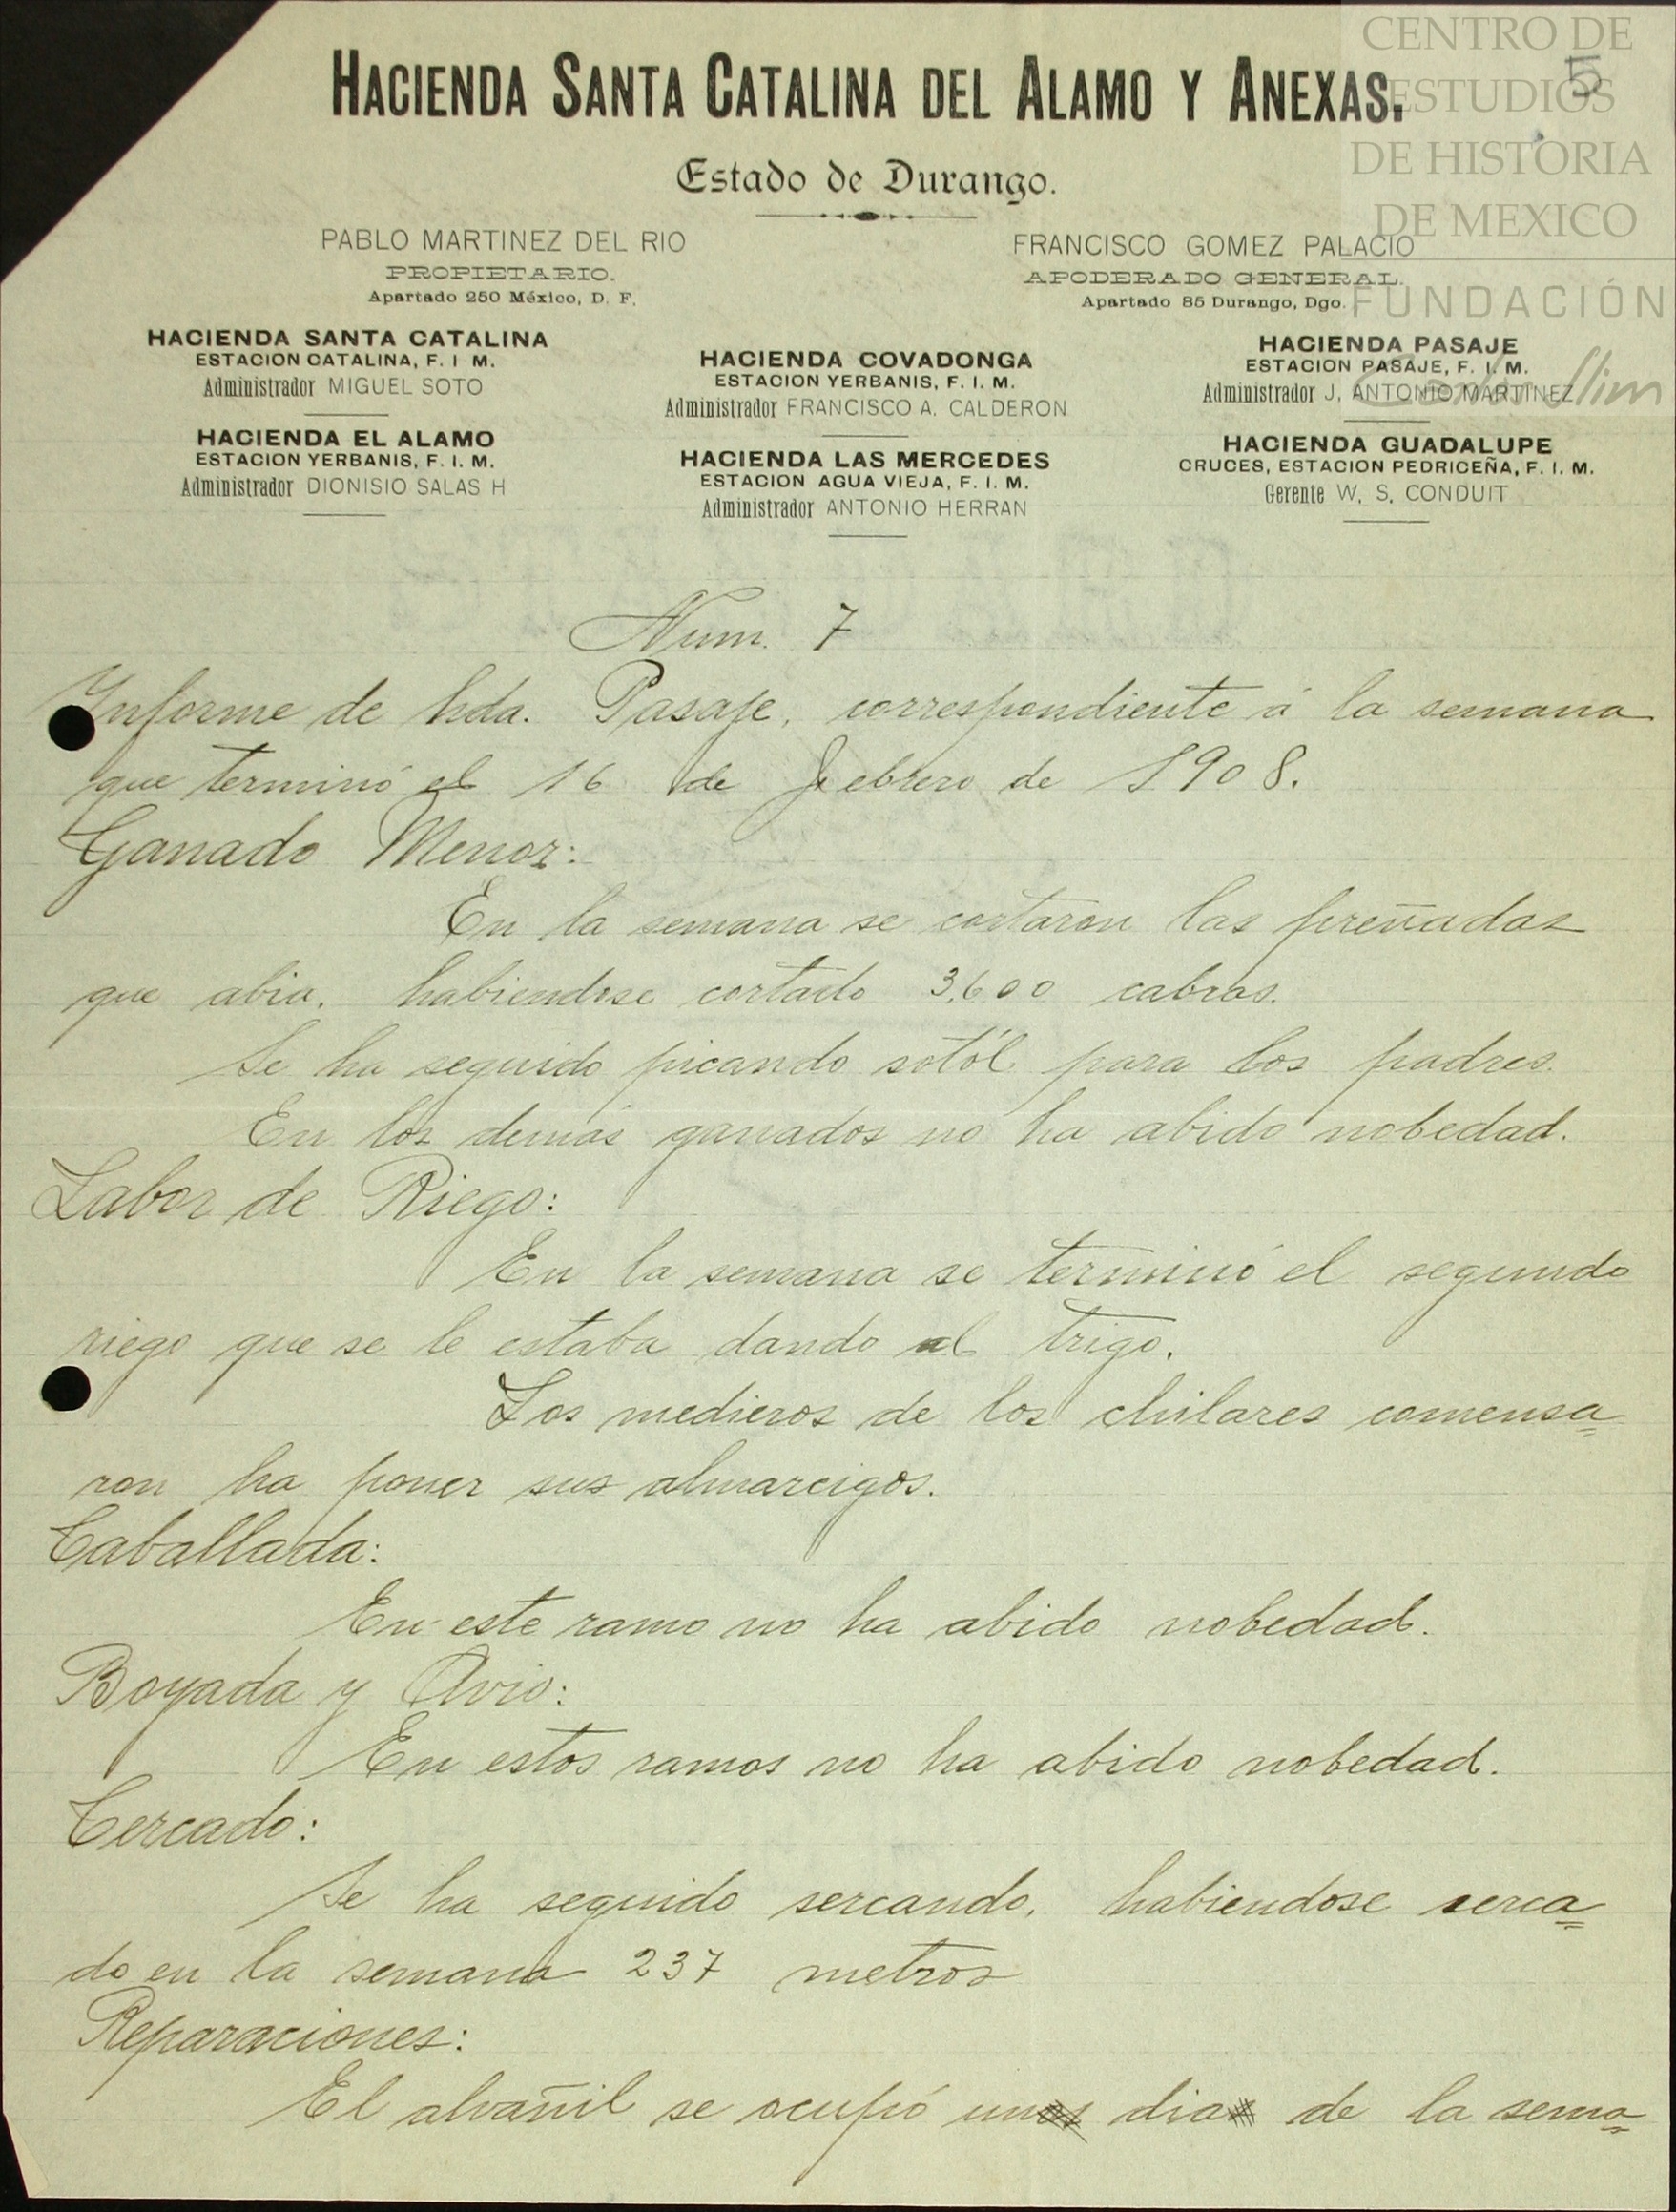 CENTRO DE
ESTUDIOS
DE HISTORIA
DE MEXICO
FUNDACIÓN
Carlos Slim
5
HACIENDA SANTA CATALINA DEL ALAMO Y ANEXAS.
Estado de Durango.
PABLO MARTINEZ DEL RIO
PROPIETARIO.
Apartado 250 México, D. F.
FRANCISCO GOMEZ PALACIO
APODERADO GENERAL.
Apartado 85 Durango, Dgo.
HACIENDA SANTA CATALINA
ESTACION CATALINA, F. I M.
Administrador MIGUEL SOTO
HACIENDA EL ALAMO
ESTACION YERBANIS, F. I. M.
Administrador DIONISIO SALAS H
HACIENDA COVADONGA
ESTACION YERBANIS, F. I. M.
Administrador FRANCISCO A. CALDERON
HACIENDA LAS MERCEDES
ESTACION AGUA VIEJA, F. I. M.
Administrador ANTONIO HERRAN
HACIENDA PASAJE
ESTACION PASAJE, F. I. M.
Administrador J. ANTONIO MARTINEZ
HACIENDA GUADALUPE
CRUCES, ESTACION PEDRICEÑA, F. I. M.
Gerente W. S. CONDUIT
Num. 7
Informe de hda. Pasaje, correspondiente á la semana
que terminó el 16 de Febrero de 1908.
Ganado Menor:
En la semana se cortaron las preñadas
que abia. habiendose cortado 3,600 cabras.
Se ha seguido picando sotól para los padres.
En los demás ganados no ha abido nobedad.
Labor de Riego:
En la semana se terminó el segundo
riego que se le estaba dando al trigo.
Los medieros de los chilares comensa=
ron ha poner sus almarcigos.
Caballada:
En este ramo no ha abido nobedad.
Boyada y Avio:
En estos ramos no ha abido nobedad.
Cercado:
Se ha seguido sercando, habiendose serca=
do en la semana 237 metros
Reparaciones:
El alvañil se ocupó un dia de la sema=